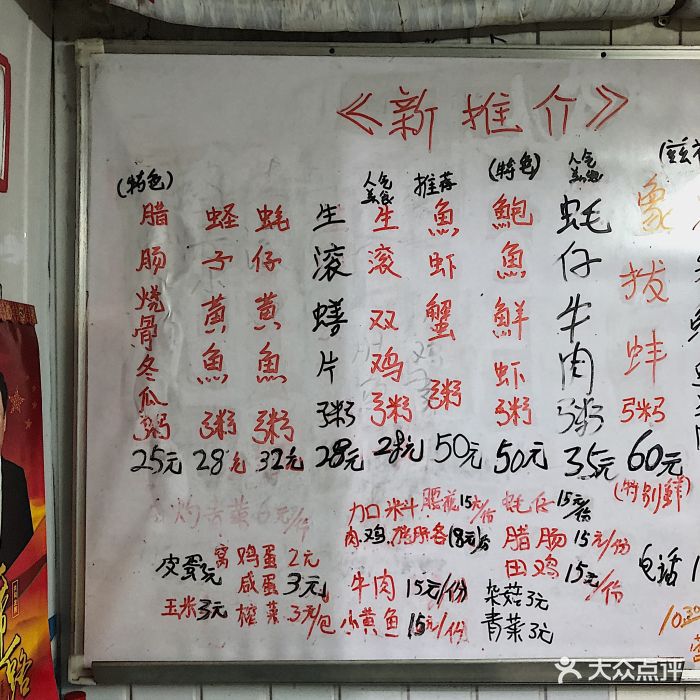 《新推介》
(特色)
腊肠烧骨冬瓜粥
25元
蛏子黄魚粥
28元
蚝仔黄魚粥
32元
生滚鳝片粥
28元
人气美食
生滚双鸡粥
28元
推荐
魚虾蟹粥
50元
(特色)
鲍魚鮮虾粥
50元
人气
蚝仔牛肉粥
35元
象拔蚌粥
60元
(特别鲜)
加料 腰花15元/份 蚝仔15元/份
肉鸡 腊肠15元/份
田鸡15元/份
皮蛋3元 窝鸡蛋2元
咸蛋3元 牛肉15元/份 杂菇3元
玉米3元 榨菜3元/包 小黄鱼15元/份 青菜3元
电话
大众点评